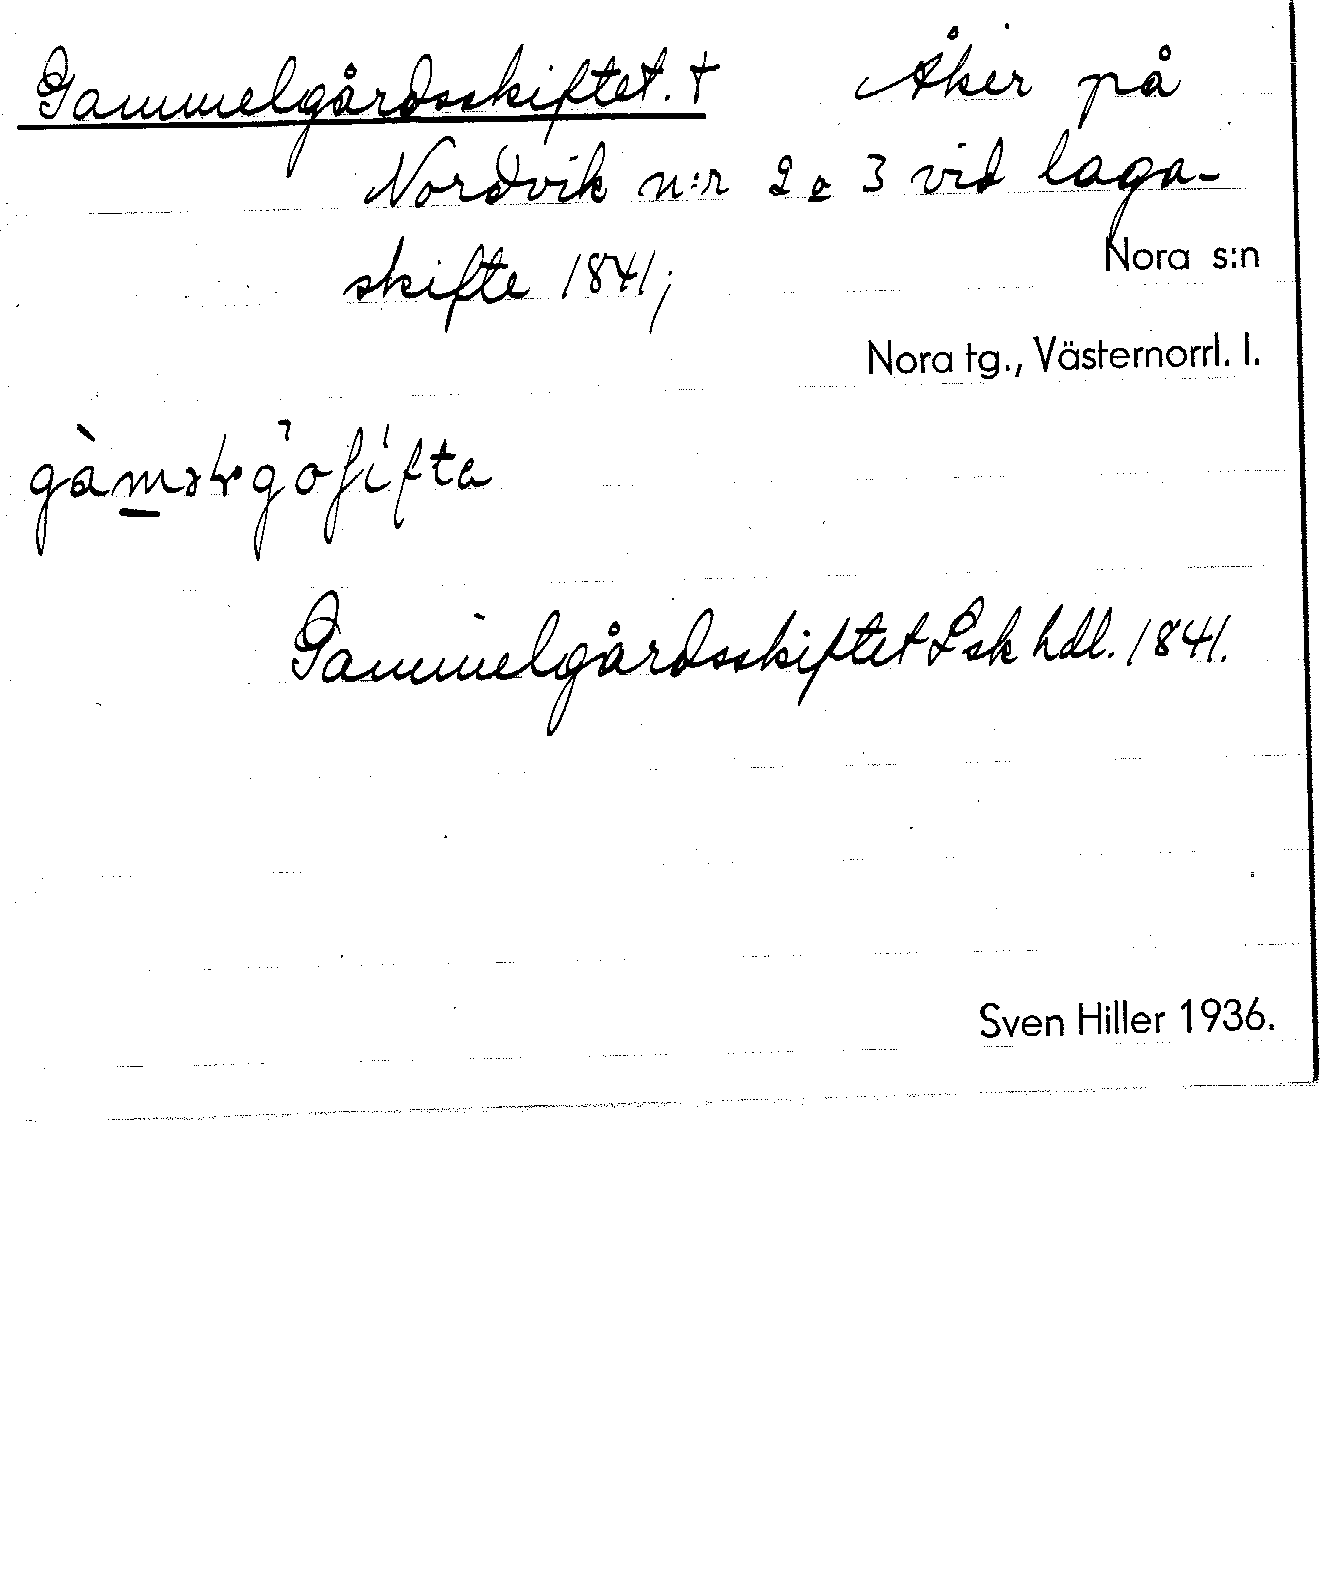 Gammelgårdsskiftet. † Åker på
Nordvik n:r 2 o 3 vid laga-
skifte 1841;
Nora s:n
Nora tg., Västernorrl. l.
Gammelgårdsskiftet Lsk hdl. 1841.
Sven Hiller 1936.